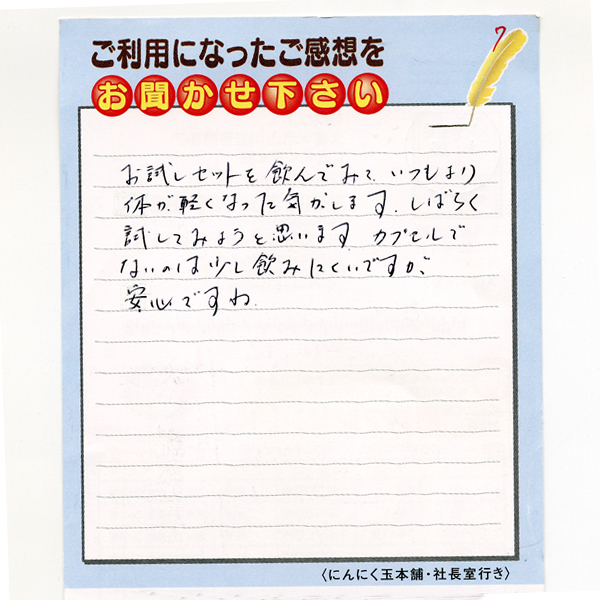 ご利用になったご感想を
お聞かせ下さい
7
お試しセットを飲んでみて、いつもより
体が軽くなった気がします。しばらく
試してみようと思います。カプセルで
ないのは少し飲みにくいですが、
安心ですね。
〈にんにく玉本舗・社長室行き〉